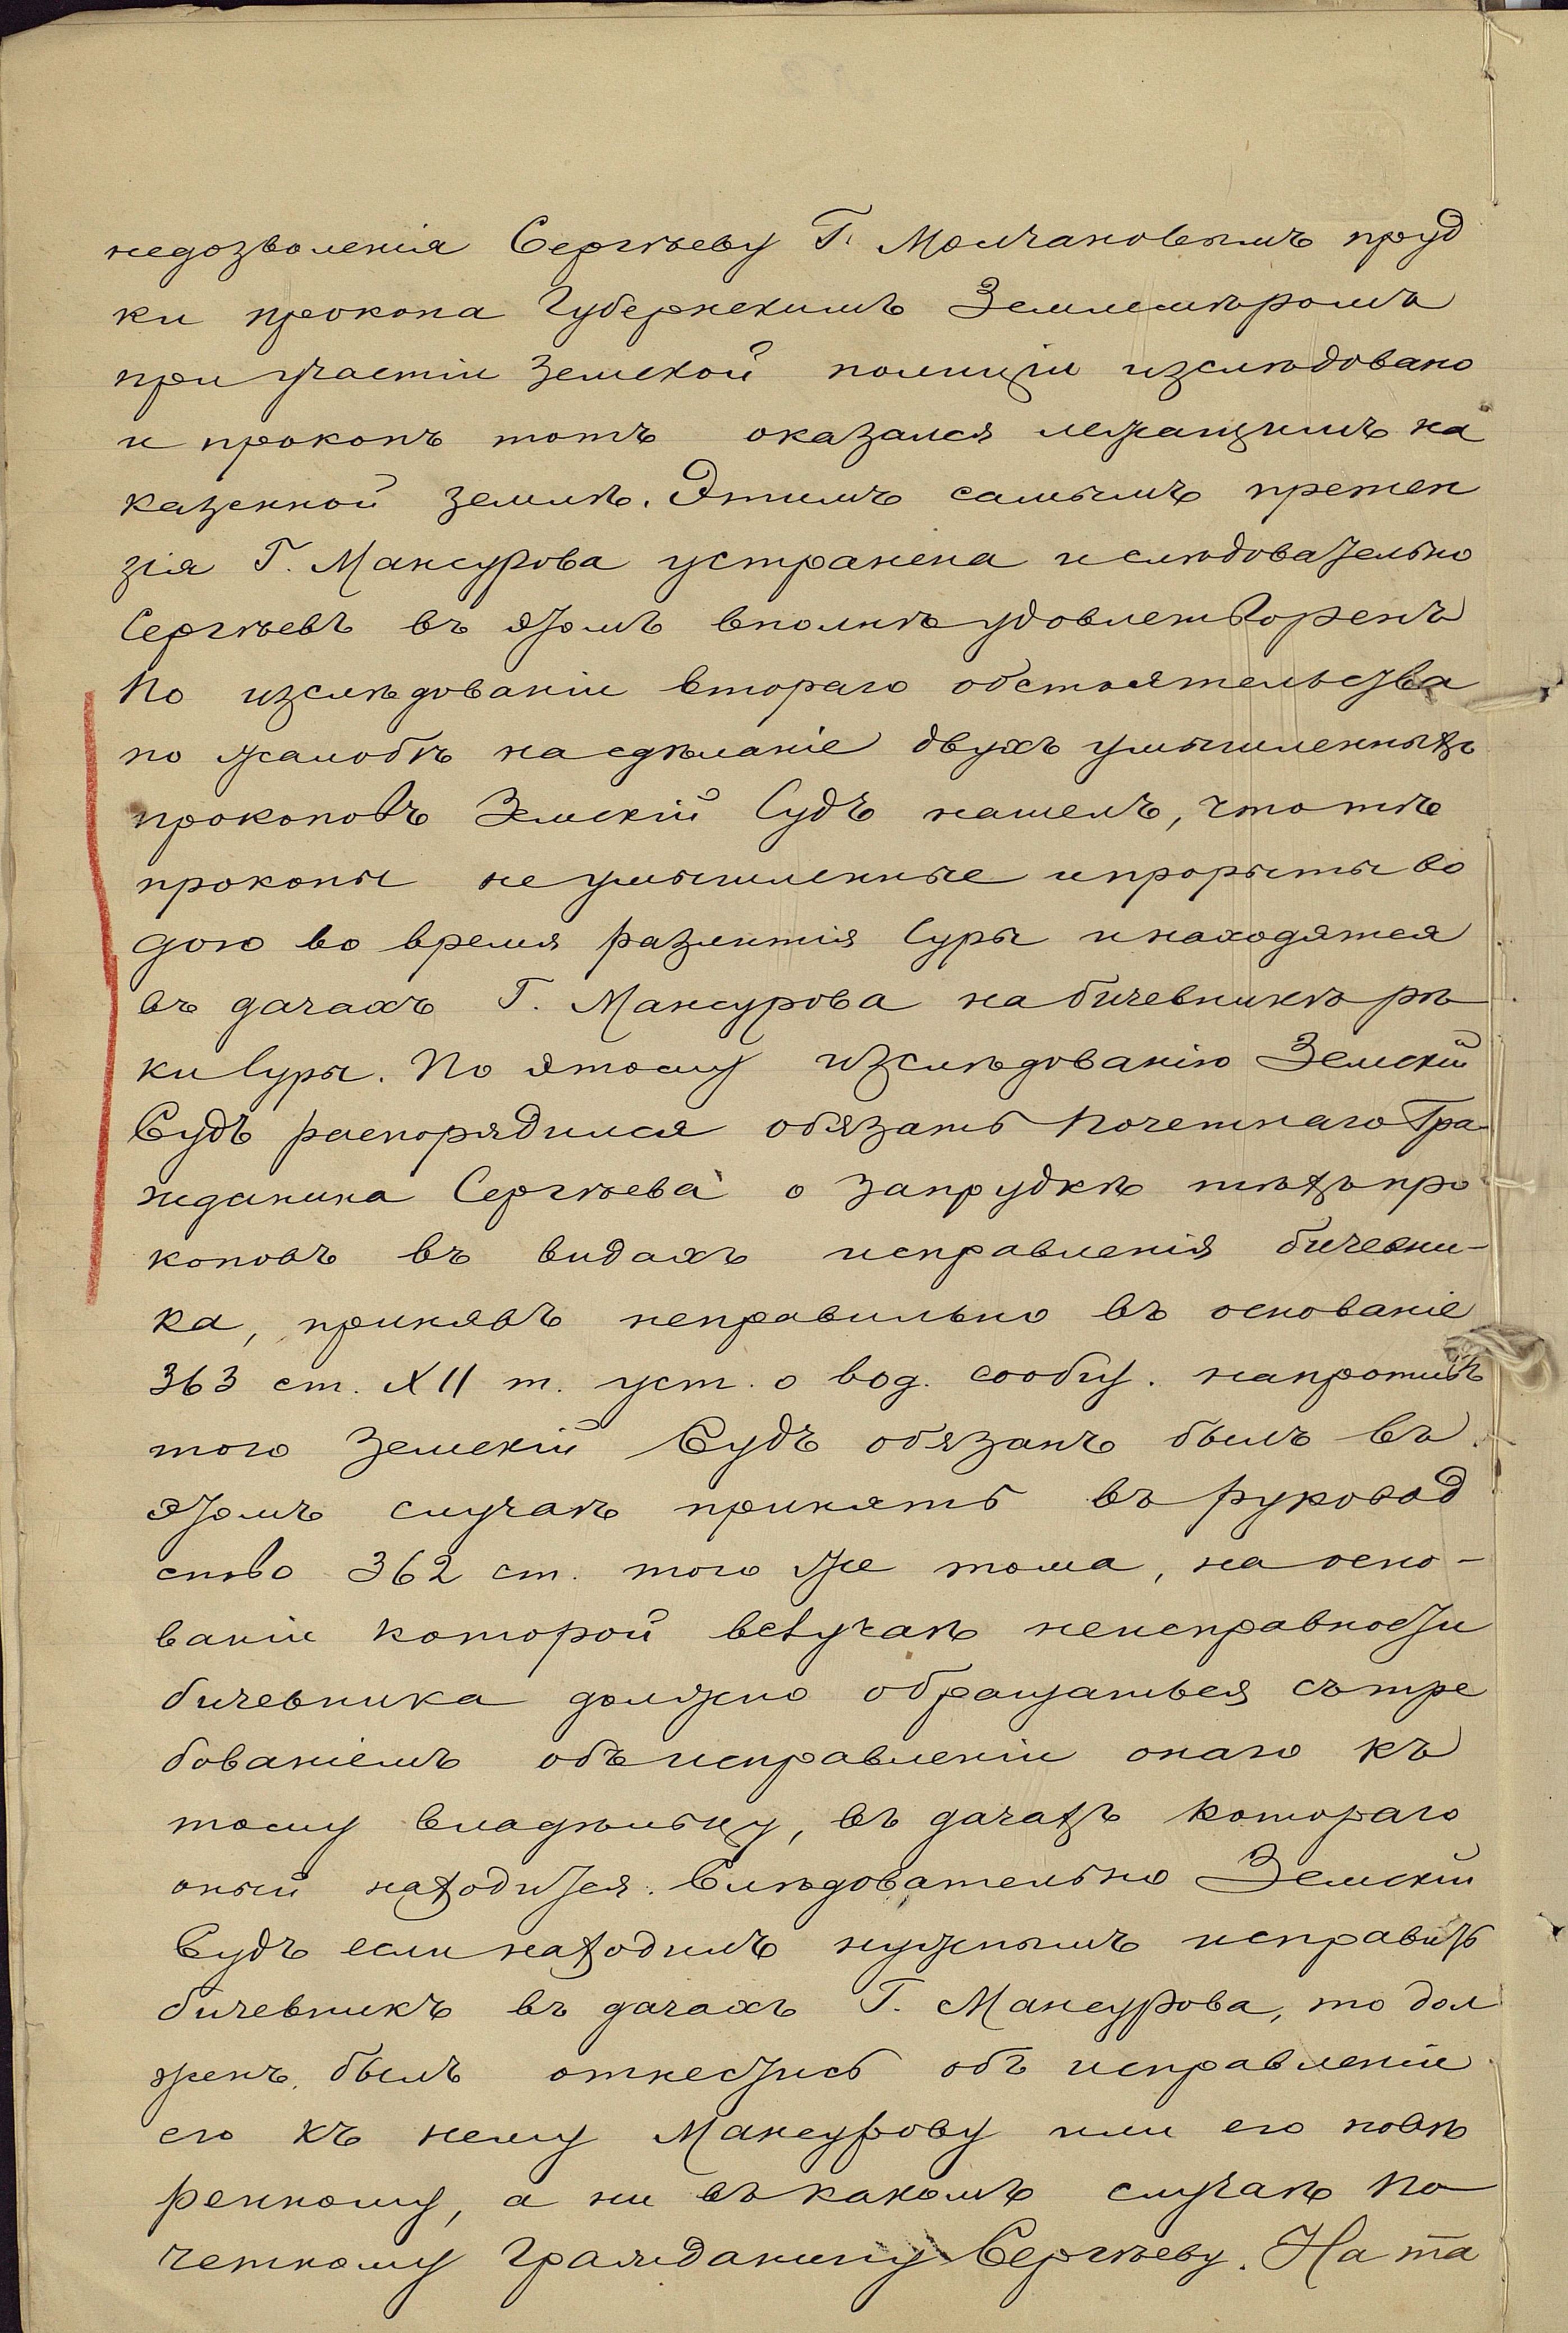 недозволенія Сергѣеву Г. Молчановымъ пруд
ки прокопа Губернскимъ Землемѣромъ
при участіи Земской полиціи изслѣдовано
и прокопъ тотъ оказался лежащимъ на
казенной землѣ. Этимъ самымъ претен
зія Г. Мансурова устранена и слѣдовательно
Сергѣевъ въ этомъ вполнѣ удовлетворенъ
По изслѣдованіи втораго обстоятельства
по жалобѣ на сдѣланіе двухъ умышленныхъ
прокоповъ Земскій Судъ нашелъ, что тѣ
прокопы не умышленные и прорыты во
дою во время разлитія Суры и находятся
въ дачахъ Г. Мансурова на бичевникѣ рѣ
ки Суры. По этому изслѣдованію Земскій
Судъ распорядился обязать Почетнаго Гра-
жданина Сергѣева о запрудкѣ тѣхъ про
коповъ въ видахъ исправленія бичевни-
ка, принявъ неправильно въ основаніе
363 ст. XII т. уст. о вод. сообщ. напротивъ
того Земскій Судъ обязанъ былъ въ
этомъ случаѣ принять въ руковод
ство 362 ст. того же тома, на осно-
ваніи которой вслучаѣ неисправности
бичевника должно обращаться съ тре
бованіемъ объ исправленіи онаго къ
тому владѣльцу, въ дачахъ котораго
оный находится. Слѣдовательно Земскій
Судъ если находилъ нужнымъ исправить
бичевникъ въ дачахъ Г. Мансурова, то дол
женъ былъ отнестись объ исправленіи
его къ нему Мансурову или его повѣ
ренному, а ни въ какомъ случаѣ По
четному Гражданину Сергѣеву. На та